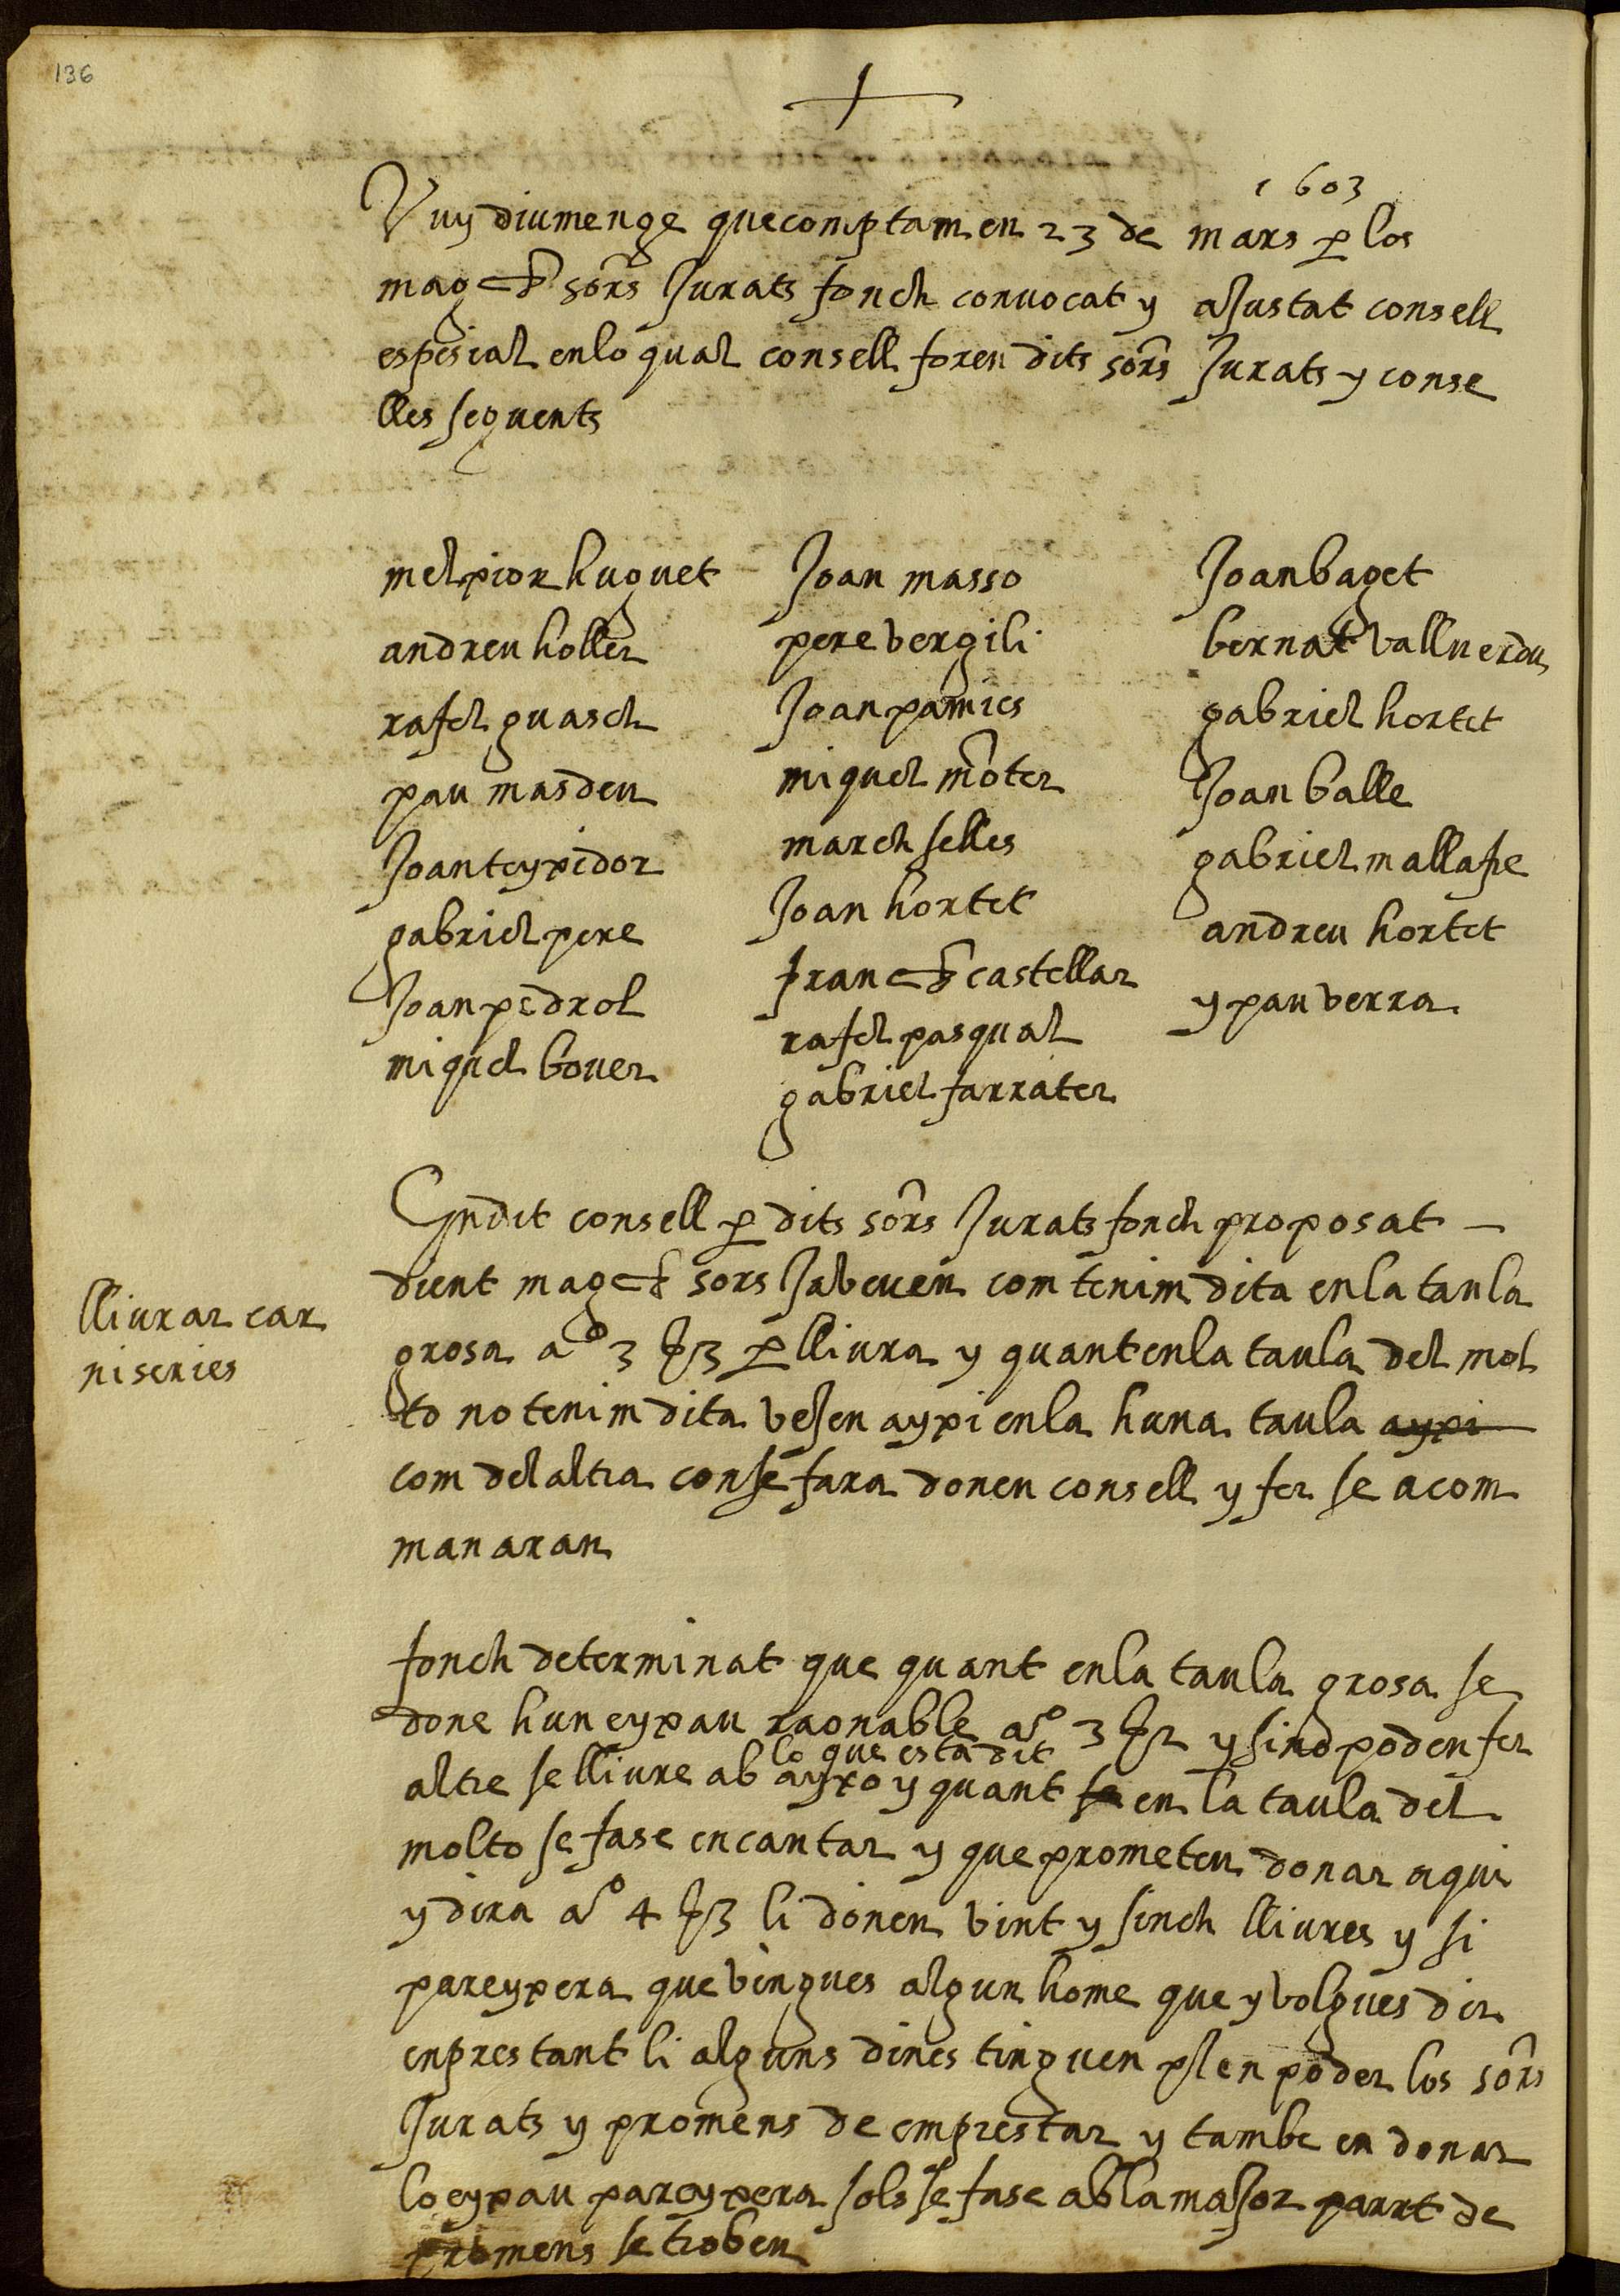 136
1603
Vuy diumenge que comptam en 23 de mars p los
magchs sors Jurats fonch conuocat y aJustat consell
espesial en lo qual consell foren dits sors Jurats y conse
lles seguents
melpior huguet
andreu holler
rafel guasch
pau masdeu
Joan teypidor
gabriel pere
Joan pedrol
miquel bouer
Joan masso
pere vergili
Joan pamies
miquel moter
march selles
Joan hortet
franch castellar
rafel pasqual
gabriel farrater
Joan baget
bernat vallverdu
gabriel hortet
Joan balle
gabriel mallafre
andreu hortet
y pau verra
En dit consell p dits sors Jurats fonch proposat
dient magchs sors Ja veuen com tenim dita en la taula
lliurar car
niseries
grosa a 3 s 3 p lliura y quant en la taula del mol
to no tenim dita veJen aypi en la huna taula aypi
com del altra con se fara donen consell y fer se a com
manaran
fonch determinat que quant en la taula grosa se
done hun eypau raonable a 3 s 2 y sino poden fer
lo que esta dit
altre se lliure ab ayxo y quant se en la taula del
molto se fase encantar y que prometen donar a qui
y dira a 4 s 3 li donen vint y sinch lliures y si
pareypera que vingues algun home que y volgues dir
enprestant li alguns dines tinguen plen poder los sors
Jurats y promens de emprestar y tambe en donar
lo eypau pareypera sols se fase ab la maJor parrt de
promens se troben